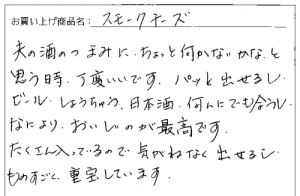 お買い上げ商品名: スモークチーズ
夫の酒のつまみに、ちょっと何かないかなと
思う時、丁度いいです。パッと出せるし、
ビール、しょうちゅう、日本酒、何んにでも合うし、
なにより、おいしいのが最高です。
たくさん入っているので気がねなく出せるし、
ものすごく重宝しています。